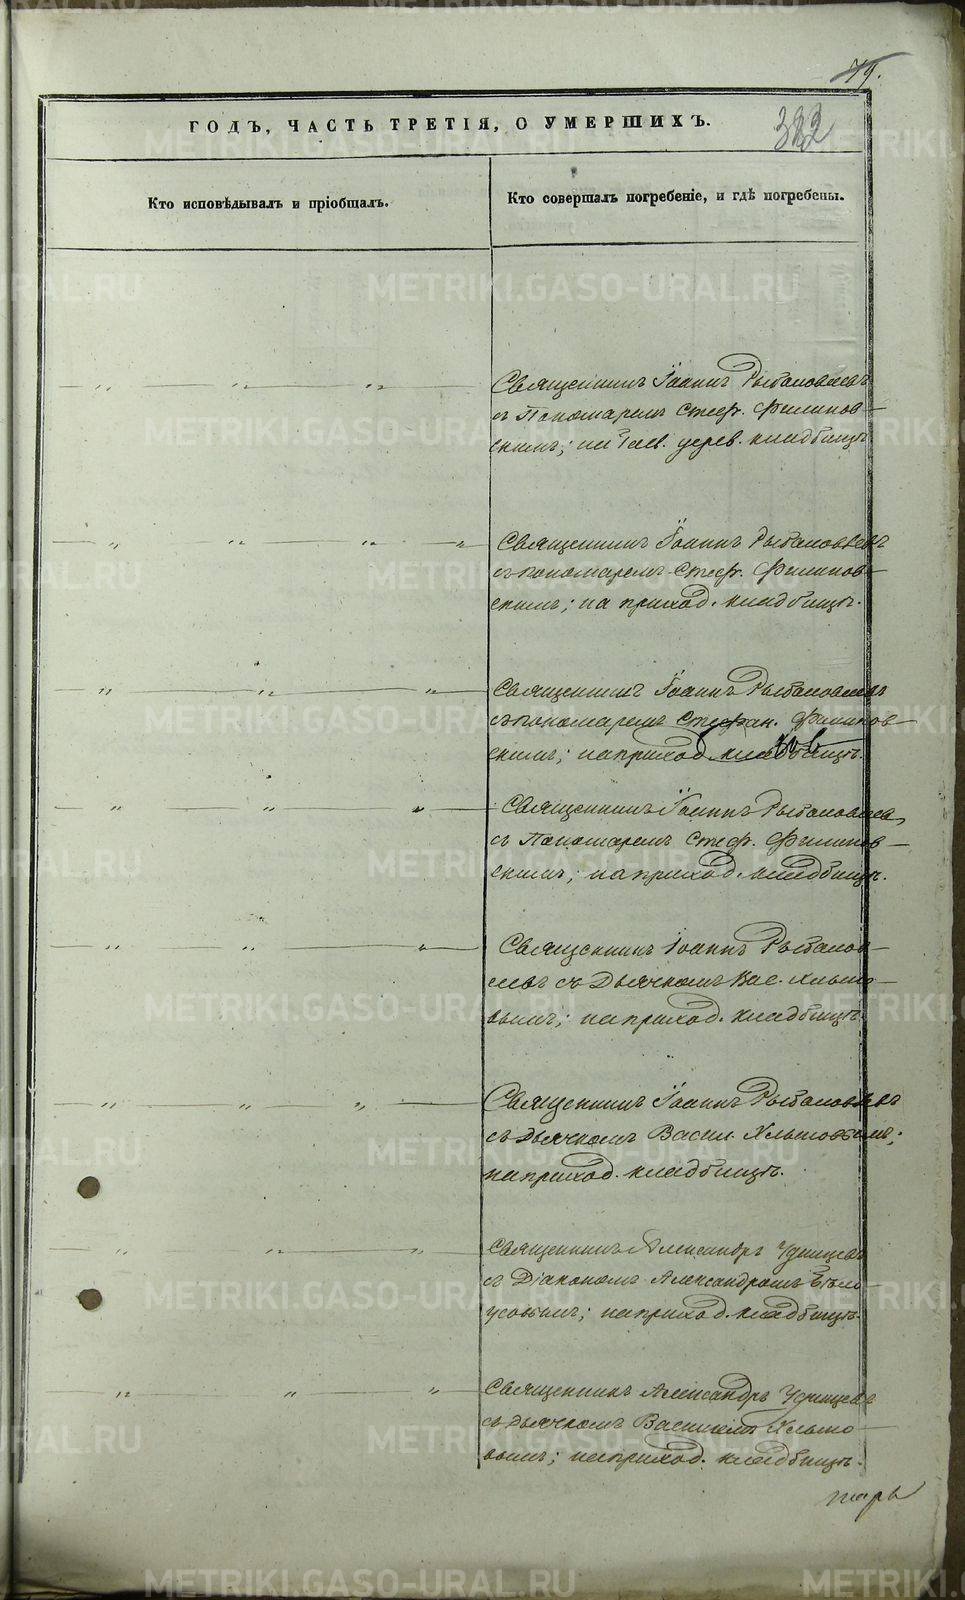 79.
ГОДЪ, ЧАСТЬ ТРЕТІЯ, О УМЕРШИХЪ.
Кто исповѣдывалъ и пріобщалъ.
Кто совершалъ погребеніе, и гдѣ погребены.
Священникъ Іоаннъ Рыболовлевъ
съ Пономаремъ Стеф. Филинов-
скимъ; на дерев. кладбищѣ
Священникъ Іоаннъ Рыболовлевъ
съ пономаремъ Стеф. Филинов-
скимъ; на приход. кладбищѣ.
Священникъ Іоаннъ Рыболовлевъ
съ пономаремъ Стефан. Филинов-
скимъ; на приход. кладбищѣ.
Священникъ Іоаннъ Рыболовлев
съ Пономаремъ Стеф. Филинов-
скимъ; на приход. кладбищѣ.
Священникъ Іоаннъ Рыболов-
левъ съ Дьячкомъ Вас. Хлыно-
вымъ; на приход. кладбищѣ.
Священникъ Іоаннъ Рыболовлевъ
съ Дьячкомъ Васил. Хлыновымъ;
на приход. кладбищѣ.
Священникъ Александръ Удинцевъ
съ Діакономъ Александромъ Бѣло-
усовымъ; на приход. кладбищѣ.
Священникъ Александръ Удинцевъ
съ дьячкомъ Василіемъ Хлыно-
вымъ; на приход. кладбищѣ.
METRIKI.GASO-URAL.RU